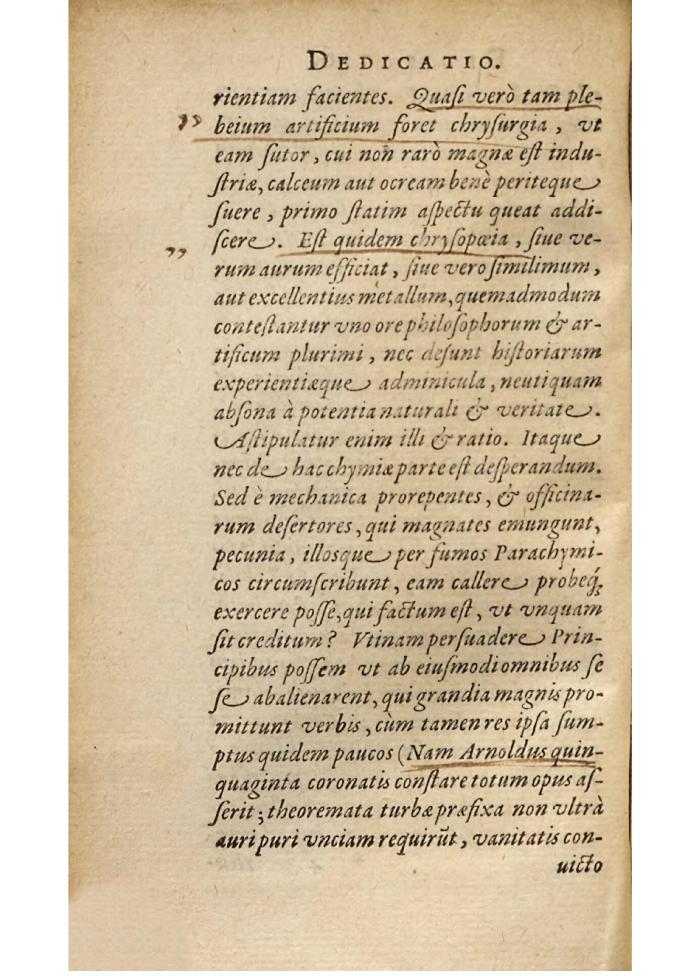 DEDICATIO.
rientiam facientes. Quaſi verò tam ple-
beium artificium foret chryſurgia, vt
eam ſutor, cui non rarò magnæ eſt indu-
ſtriæ, calceum aut ocream benè periteque
ſuere, primo ſtatim aſpectu queat addi-
ſcere. Eſt quidem chryſopœia, ſiue ve-
rum aurum efficiat, ſiue vero ſimilimum,
aut excellentius metallum, quemadmodum
conteſtantur vno ore philoſophorum & ar-
tificum plurimi, nec deſunt hiſtoriarum
experientiæque adminicula, neutiquam
abſona à potentia naturali & veritate.
Aſtipulatur enim illi & ratio. Itaque
nec de hac chymiæ parte eſt deſperandum.
Sed è mechanica prorepentes, & officina-
rum deſertores, qui magnates emungunt,
pecunia, illosque per fumos Parachymi-
cos circumſcribunt, eam callere probeq́;
exercere poſſe, qui factum eſt, vt vnquam
ſit creditum? Vtinam perſuadere Prin-
cipibus poſſem vt ab eiuſmodi omnibus ſe
ſe abalienarent, qui grandia magnis pro-
mittunt verbis, cùm tamen res ipſa ſum-
ptus quidem paucos (Nam Arnoldus quin-
quaginta coronatis conſtare totum opus aſ-
ſerit; theoremata turbæ præfixa non vltrà
auri puri vnciam requirũt, vanitatis con-
uicto